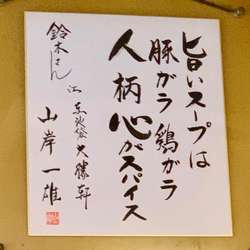 旨いスープは
豚ガラ鶏ガラ
人柄心がスパイス
鈴木さん
江
東池袋大勝軒
山岸一雄